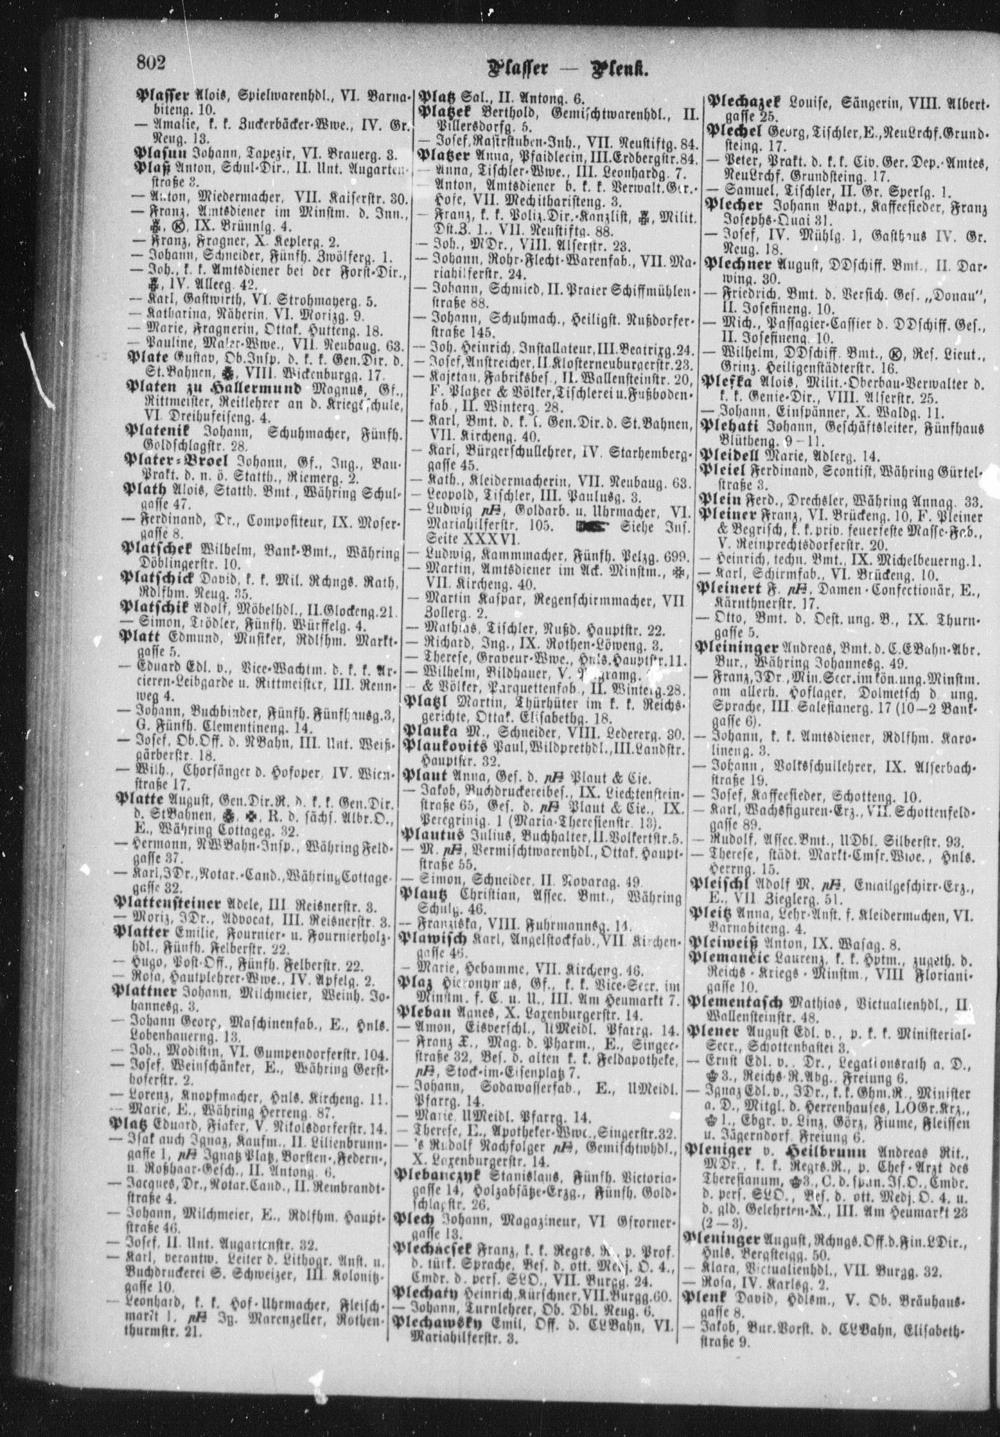 802
Plasser — Plenk.
Plasser Alois, Spielwarenhdl., VI. Barna-
biteng. 10.
— Amalie, k. k. Zuckerbäcker-Wwe., IV. Gr.
Neug. 13.
Plasun Johann, Tapezir, VI. Brauerg. 3.
Plaß Anton, Schul-Dir., II. Unt. Augarten-
straße 3.
— Anton, Miedermacher, VII. Kaiserstr. 30.
— Franz, Amtsdiener im Minstm. d. Inn.,
IX. Brünnlg. 4.
— Franz, Fragner, X. Keplerg. 2.
— Johann, Schneider, Fünfh. Zwölferg. 1.
— Joh., k. k. Amtsdiener bei der Forst-Dir.,
IV. Alleeg. 42.
— Karl, Gastwirth, VI. Strohmayerg. 5.
— Katharina, Näherin, VI. Morizg. 9.
— Marie, Fragnerin, Ottak. Hutteng. 18.
— Pauline, Maler-Wwe., VII. Neubaug. 63.
Plate Gustav, Ob.Insp. d. k. k. Gen.Dir. d.
St.Bahnen, VIII. Wickenburgg. 17.
Platen zu Hallermund Magnus, Gf.,
Rittmeister, Reitlehrer an d. Kriegsschule,
VI. Dreihufeiseng. 4.
Platenik Johann, Schuhmacher, Fünfh.
Goldschlagstr. 28.
Plater-Broel Johann, Gf., Ing., Bau-
Prakt. d. n. ö. Statth., Riemerg. 2.
Plath Alois, Statth. Bmt., Währing Schul-
gasse 47.
— Ferdinand, Dr., Compositeur, IX. Moser-
gasse 8.
Platschek Wilhelm, Bank-Bmt., Währing
Döblingerstr. 10.
Platschick David, k. k. Mil. Rchngs. Rath,
Rdlfhm. Neug. 35.
Platschik Adolf, Möbelhdl., II. Glockeng. 21.
— Simon, Trödler, Fünfh. Würffelg. 4.
Platt Edmund, Musiker, Rdlfhm. Markt-
gasse 5.
— Eduard Edl. v., Vice-Wachtm. d. k. k. Ar-
cieren-Leibgarde u. Rittmeister, III. Renn-
weg 4.
— Johann, Buchbinder, Fünfh. Fünfhausg. 3,
G. Fünfh. Clementineng. 14.
— Josef, Ob.Off. d. NBahn, III. Unt. Weiß-
gärberstr. 18.
— Wilh., Chorsänger d. Hofoper, IV. Wien-
straße 17.
Platte August, Gen.Dir.R. d. k. k. Gen.Dir.
d. StBahnen, R. d. sächs. Albr.O.,
E., Währing Cottageg. 32.
— Hermann, NWBahn-Insp., Währing Feld-
gasse 37.
— Karl, JDr., Notar.-Cand., Währing Cottage-
gasse 32.
Plattensteiner Adele, III Reisnerstr. 3.
— Moriz, JDr., Advocat, III. Reisnerstr. 3.
Platter Emilie, Fournier- u. Fournierholz-
hdl., Fünfh. Felberstr. 22.
— Hugo, Post-Off., Fünfh. Felberstr. 22.
— Rosa, Hauptlehrer-Wwe., IV. Apfelg. 2.
Plattner Johann, Milchmeier, Weinh. Jo-
hannesg. 3.
— Johann Georg, Maschinenfab., E., Hnls.
Lobenhauerng. 13.
— Joh., Modistin, VI. Gumpendorferstr. 104.
— Josef, Weinschänker, E., Währing Gerst-
hoferstr. 2.
— Lorenz, Knopfmacher, Hnls. Kircheng. 11.
— Marie, E., Währing Herreng. 87.
Platz Eduard, Fiaker, V. Nikolsdorferstr. 14.
— Isak auch Ignaz, Kaufm., II. Lilienbrunn-
gasse 1, Ignatz Platz, Borsten-, Federn-,
u. Roßhaar-Gesch., II. Antong. 6.
— Jacques, Dr., Notar.Cand., II. Rembrandt-
straße 4.
— Johann, Milchmeier, E., Rdlfhm. Haupt-
straße 46.
— Josef, II. Unt. Augartenstr. 32.
— Karl, verantw. Leiter d. Lithogr. Anst. u.
Buchdruckerei S. Schweizer, III. Kolonitz-
gasse 10.
— Leonhard, k. k. Hof-Uhrmacher, Fleisch-
markt 1, Ig. Marenzeller, Rothen-
thurmstr. 21.
Platz Sal., II. Antong. 6.
Platzek Berthold, Gemischtwarenhdl., II.
Pillersdorfg. 5.
— Josef, Rasirstuben-Inh., VII. Neustiftg. 84.
Platzer Anna, Pfaidlerin, III. Erdbergstr. 84.
— Anna, Tischler-Wwe., III. Leonhardg. 7.
— Anton, Amtsdiener b. k. k. Verwalt.Ger.-
Hofe, VII. Mechitharisteng. 3.
— Franz, k. k. Poliz.Dir.-Kanzlist, Milit.
Dst.Z. 1., VII. Neustiftg. 88.
— Joh., MDr., VIII. Alserstr. 23.
— Johann, Rohr-Flecht-Warenfab., VII. Ma-
riahilferstr. 24.
— Johann, Schmied, II. Praier Schiffmühlen-
straße 88.
— Johann, Schuhmach., Heiligst. Nußdorfer-
straße 145.
— Joh. Heinrich, Installateur, III. Beatrixg. 24.
— Josef, Anstreicher, II. Klosterneuburgerstr. 23.
— Kajetan, Fabriksbes., II. Wallensteinstr. 20,
F. Platzer & Völker, Tischlerei u. Fußboden-
fab., II. Winterg. 28.
— Karl, Bmt. d. k. k. Gen.Dir. d. St.Bahnen,
VII. Kircheng. 40.
— Karl, Bürgerschullehrer, IV. Starhemberg-
gasse 45.
— Kath., Kleidermacherin, VII. Neubaug. 63.
— Leopold, Tischler, III. Paulusg. 3.
— Ludwig, Goldarb. u. Uhrmacher, VI.
Mariahilferstr. 105. Siehe Ins.
Seite XXXVI.
— Ludwig, Kammmacher, Fünfh. Pelzg. 699.
— Martin, Amtsdiener im Ack. Minstm.,
VII. Kircheng. 40.
— Martin Kaspar, Regenschirmmacher, VII
Zollerg. 2.
— Mathias, Tischler, Nußd. Hauptstr. 22.
— Richard, Ing., IX. Rothen-Löweng. 3.
— Therese, Graveur-Wwe., Hnls. Hauptstr. 11.
— Wilhelm, Bildhauer, V.
— & Völker, Parquettenfab., II. Winterg. 28.
Platzl Martin, Thürhüter im k. k. Reichs-
gerichte, Ottak. Elisabethg. 18.
Plauka M., Schneider, VIII. Ledererg. 30.
Plaukovits Paul, Wildprethdl., III. Landstr.
Hauptstr. 32.
Plaut Anna, Ges. d. Plaut & Cie.
— Jakob, Buchdruckereibes., IX. Liechtenstein-
straße 65, Ges. d. Plaut & Cie., IX.
Peregrinig. 1 (Maria-Theresienstr. 13).
Plautus Julius, Buchhalter, II. Volkertstr. 5.
— M., Vermischtwarenhdl., Ottak. Haupt-
straße 55.
— Simon, Schneider, II. Novarag. 49.
Plautz Christian, Assec. Bmt., Währing
Schulg. 46.
— Franziska, VIII. Fuhrmannsg. 14.
Plawisch Karl, Angelstockfab., VII. Kirchen-
gasse 46.
— Marie, Hebamme, VII. Kircheng. 46.
Plaz Hieronymus, Gf., k. k. Vice-Secr. im
Minstm. f. C. u. U., III. Am Heumarkt 7.
Pleban Agnes, X. Laxenburgerstr. 14.
— Amon, Eisverschl., UMeidl. Pfarrg. 14.
— Franz X., Mag. d. Pharm., E., Singer-
straße 32, Bes. d. alten k. k. Feldapotheke,
Stock-im-Eisenplatz 7.
— Johann, Sodawasserfab., E., UMeidl.
Pfarrg. 14.
— Marie, UMeidl. Pfarrg. 14.
— Therese, E., Apotheker-Wwe., Singerstr. 32.
— 's Rudolf Nachfolger, Gemischtwhdl.,
X. Laxenburgerstr. 14.
Plebanczyk Stanislaus, Fünfh. Victoria-
gasse 14, Holzabsätze-Erzg., Fünfh. Gold-
schlagstr. 26.
Plech Johann, Magazineur, VI Gfrorner-
gasse 13.
Plechacsek Franz, k. k. Regrs. R., p. Prof.
d. türk. Sprache, Bes. d. ott. Medj. O. 4.,
Cmdr. d. pers. SLO., VII. Burgg. 24.
Plechaty Heinrich, Kürschner, VII. Burgg. 60.
— Johann, Turnlehrer, Ob. Dbl. Neug. 6.
Plechawsky Emil, Off. d. CLBahn, VI.
Mariahilferstr. 3.
Plechazek Louise, Sängerin, VIII. Albert-
gasse 25.
Plechel Georg, Tischler, E., NeuLrchf. Grund-
steing. 17.
— Peter, Prakt. d. k. k. Civ. Ger. Dep.-Amtes,
NeuLrchf. Grundsteing. 17.
— Samuel, Tischler, II. Gr. Sperlg. 1.
Plecher Johann Bapt., Kaffeesieder, Franz
Josephs-Quai 31.
— Josef, IV. Mühlg. 1, Gasthaus IV. Gr.
Neug. 18.
Plechner August, DDschiff. Bmt., II. Dar-
wing. 30.
— Friedrich, Bmt. d. Versich. Ges. „Donau",
II. Josefineng. 10.
— Mich., Passagier-Cassier d. DDschiff. Ges.,
II. Josefineng. 10.
— Wilhelm, DDschiff. Bmt., Res. Lieut.,
Grinz. Heiligenstädterstr. 16.
Pleska Alois, Milit.-Oberbau-Verwalter d.
k. k. Genie-Dir., VIII. Alserstr. 25.
— Johann, Einspänner, X. Waldg. 11.
Plehati Johann, Geschäftsleiter, Fünfhaus
Blütheng. 9–11.
Pleidell Marie, Adlerg. 14.
Pleiel Ferdinand, Scontist, Währing Gürtel-
straße 3.
Plein Ferd., Drechsler, Währing Annag. 33.
Pleiner Franz, VI. Brückeng. 10, F. Pleiner
& Begrisch, k. k. priv. feuerfeste Masse-Fab.,
V. Reinprechtsdorferstr. 20.
— Heinrich, techn. Bmt., IX. Michelbeuerng. 1.
— Karl, Schirmfab., VI. Brückeng. 10.
Pleinert F., Damen-Confectionär, E.,
Kärnthnerstr. 17.
— Otto, Bmt. d. Oest. ung. B., IX. Thurn-
gasse 5.
Pleininger Andreas, Bmt. d. C.EBahn-Abr.
Bur., Währing Johannesg. 49.
— Franz, JDr., Min. Secr. im kön. ung. Minstm.
am allerh. Hoflager, Dolmetsch d. ung.
Sprache, III. Salesianerg. 17 (10–2 Bank-
gasse 6).
— Johann, k. k. Amtsdiener, Rdlfhm. Karo-
lineng. 3.
— Johann, Volksschullehrer, IX. Alserbach-
straße 19.
— Josef, Kaffeesieder, Schotteng. 10.
— Karl, Wachsfiguren-Erz., VII. Schottenfeld-
gasse 89.
— Rudolf, Assec. Bmt., UDbl. Silberstr. 93.
— Therese, städt. Markt-Cmsr. Wwe., Hnls.
Herrng. 15.
Pleischl Adolf M., Emailgeschirr-Erz.,
E., VII. Zieglerg. 51.
Pleitz Anna, Lehr-Anst. f. Kleidermachen, VI.
Barnabiteng. 4.
Pleiweiß Anton, IX. Wasag. 8.
Plemancic Laurenz, k. k. Hptm., zugeth. d.
Reichs-Kriegs-Minstm., VIII Floriani-
gasse 10.
Plementasch Mathias, Victualienhdl., II
Wallensteinstr. 48.
Plener August Edl. v., p. k. k. Ministerial-
Secr., Schottenbastei 3.
— Ernst Edl. v., Dr., Legationsrath a. D.,
3., Reichs-R.Abg., Freiung 6.
— Ignaz Edl. v., JDr., k. k. Ghm.R., Minister
a. D., Mitgl. d. Herrenhauses, LOGr.Krz.,
1., Ebgr. v. Linz, Görz, Fiume, Fleissen
u. Jägerndorf, Freiung 6.
Pleniger v. Heilbrunn Andreas Rit.,
MDr., k. k. Regrs.R., p. Chef-Arzt des
Theresianum, 3., C. d. span. Is.O., Cmdr.
d. pers. SLO., Bes. d. ott. Medj. O. 4. u.
d. gld. Gelehrten-M., III. Am Heumarkt 23
(2–3).
Pleninger August, Rchngs. Off. d. Fin.LDir.,
Hnls. Bergsteigg. 50.
— Klara, Victualienhdl., VII. Burgg. 32.
— Rosa, IV. Karlsg. 2.
Plenk David, Hdlsm., V. Ob. Bräuhaus-
gasse 8.
— Jakob, Bur. Vorst. d. CLBahn, Elisabeth-
straße 9.